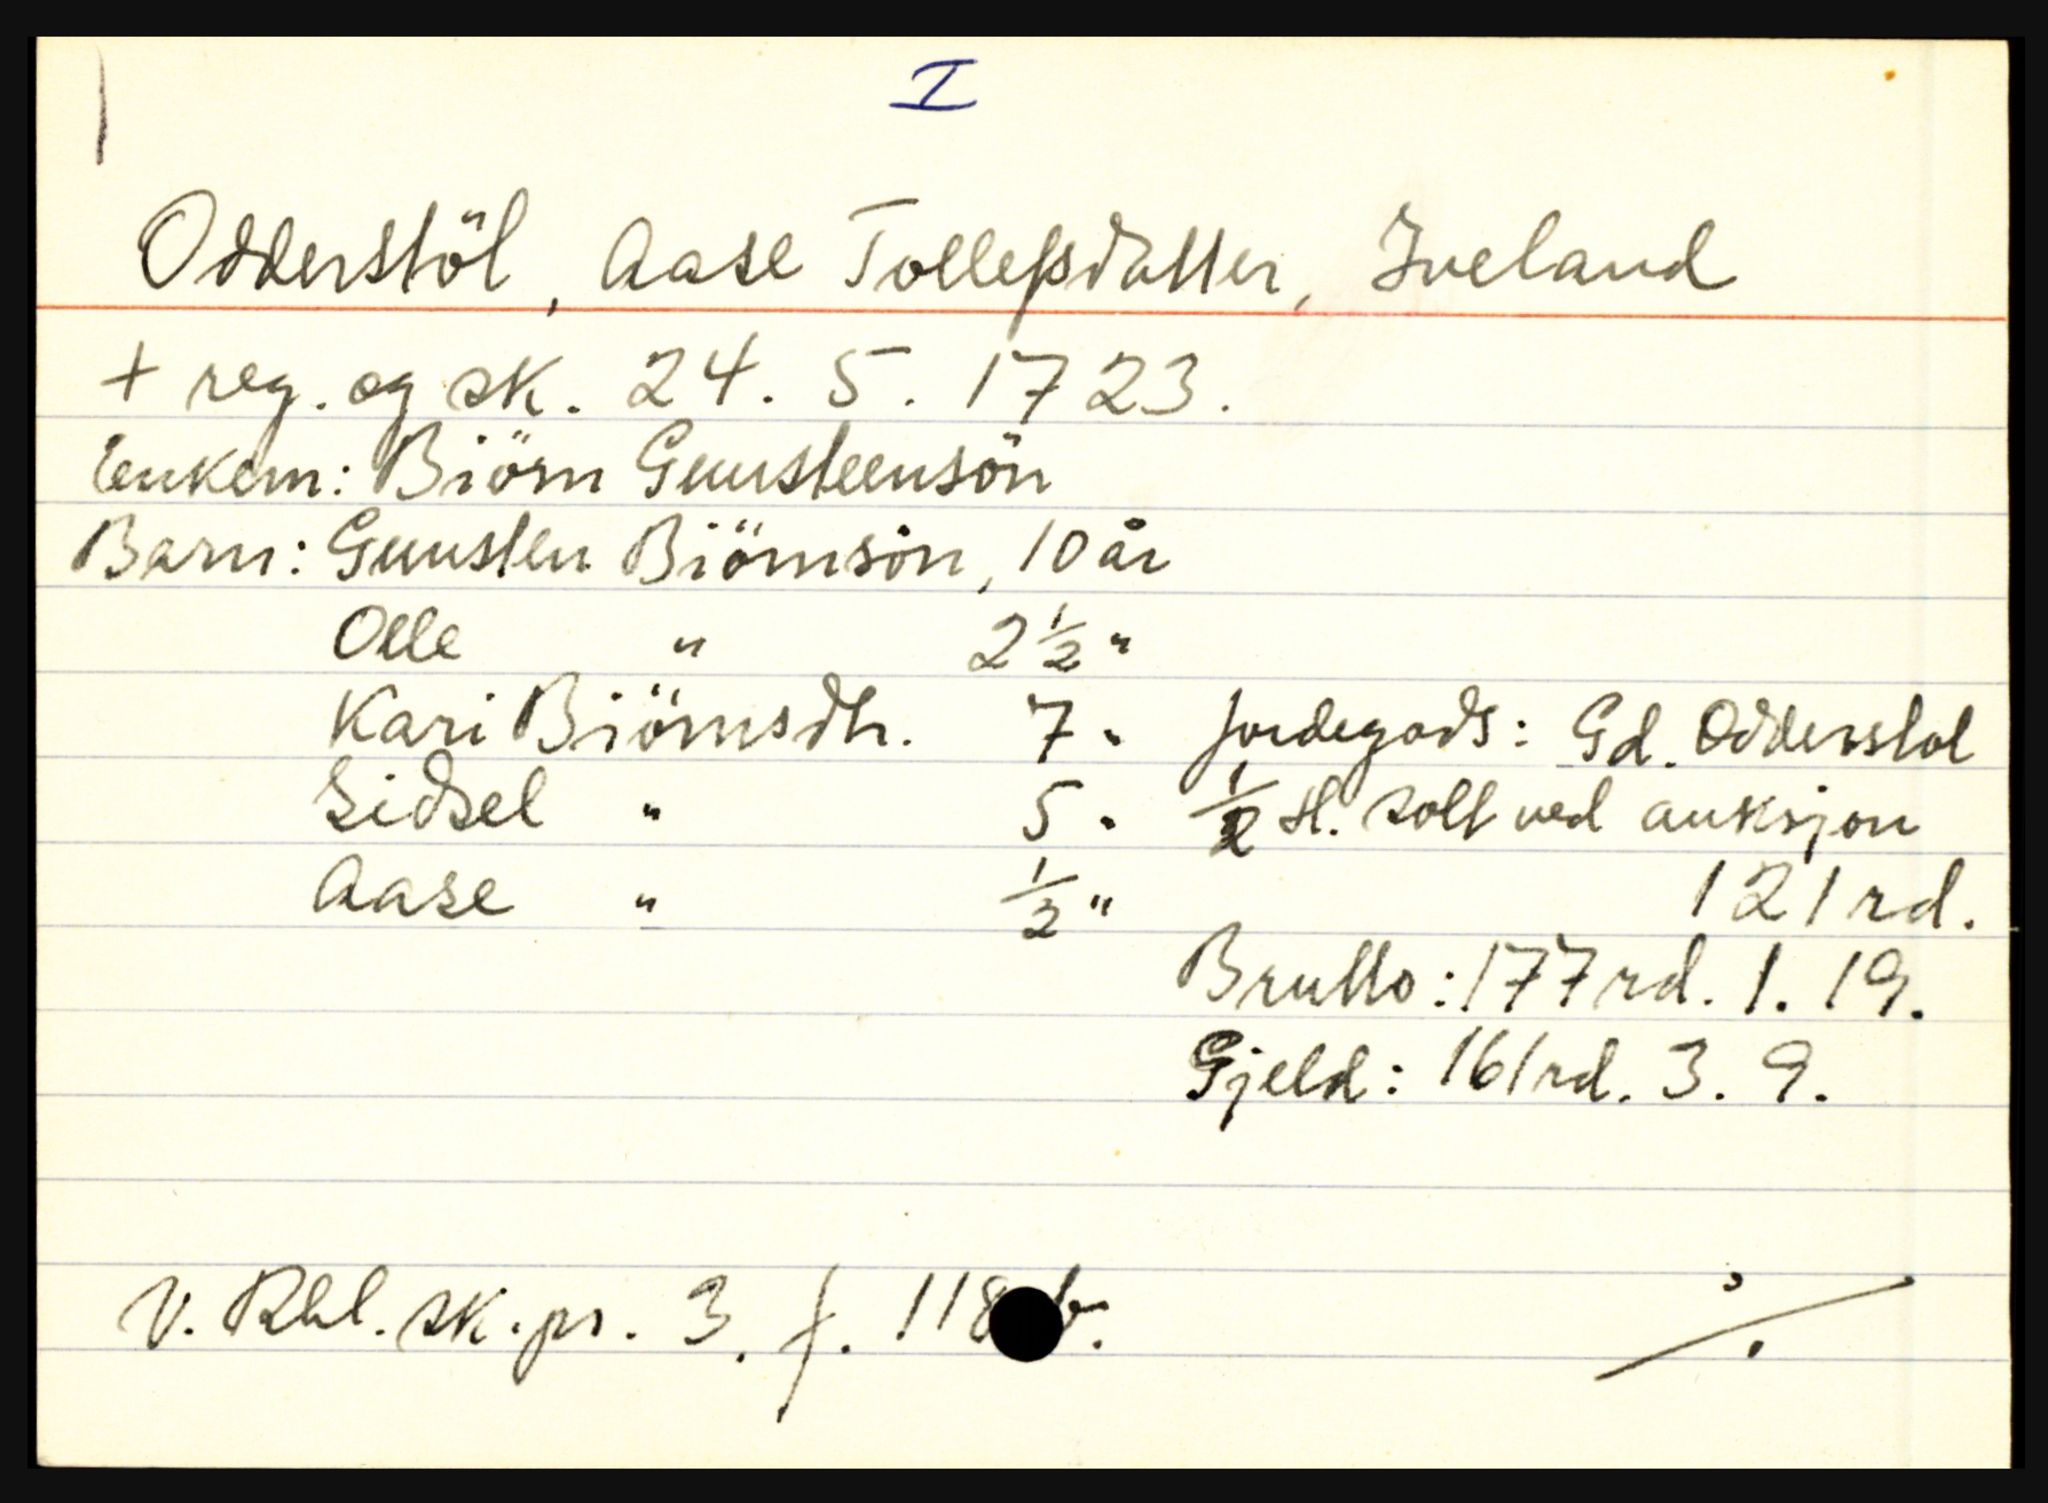 I
Odderstöl, Aase Tollefsdatter, Iveland
+ reg. og sk. 24. 5. 1723.
Enkem: Biörn Gunsteensön
Barn: Gunsten Biörnsön, 10 år
Olle " 2 1/2 "
Kari Biörnsdtr. 7 "
Sidsel " 5 "
Aase " 1/2 "
Jordegods: Gd. Odderstøl
1/2 H. solt ved auksjon
121 rd.
Brutto: 177 rd. 1. 19.
Gjeld: 161 rd. 3. 9.
V. Rbl. sk. pr. 3. f. 118 b.
./.